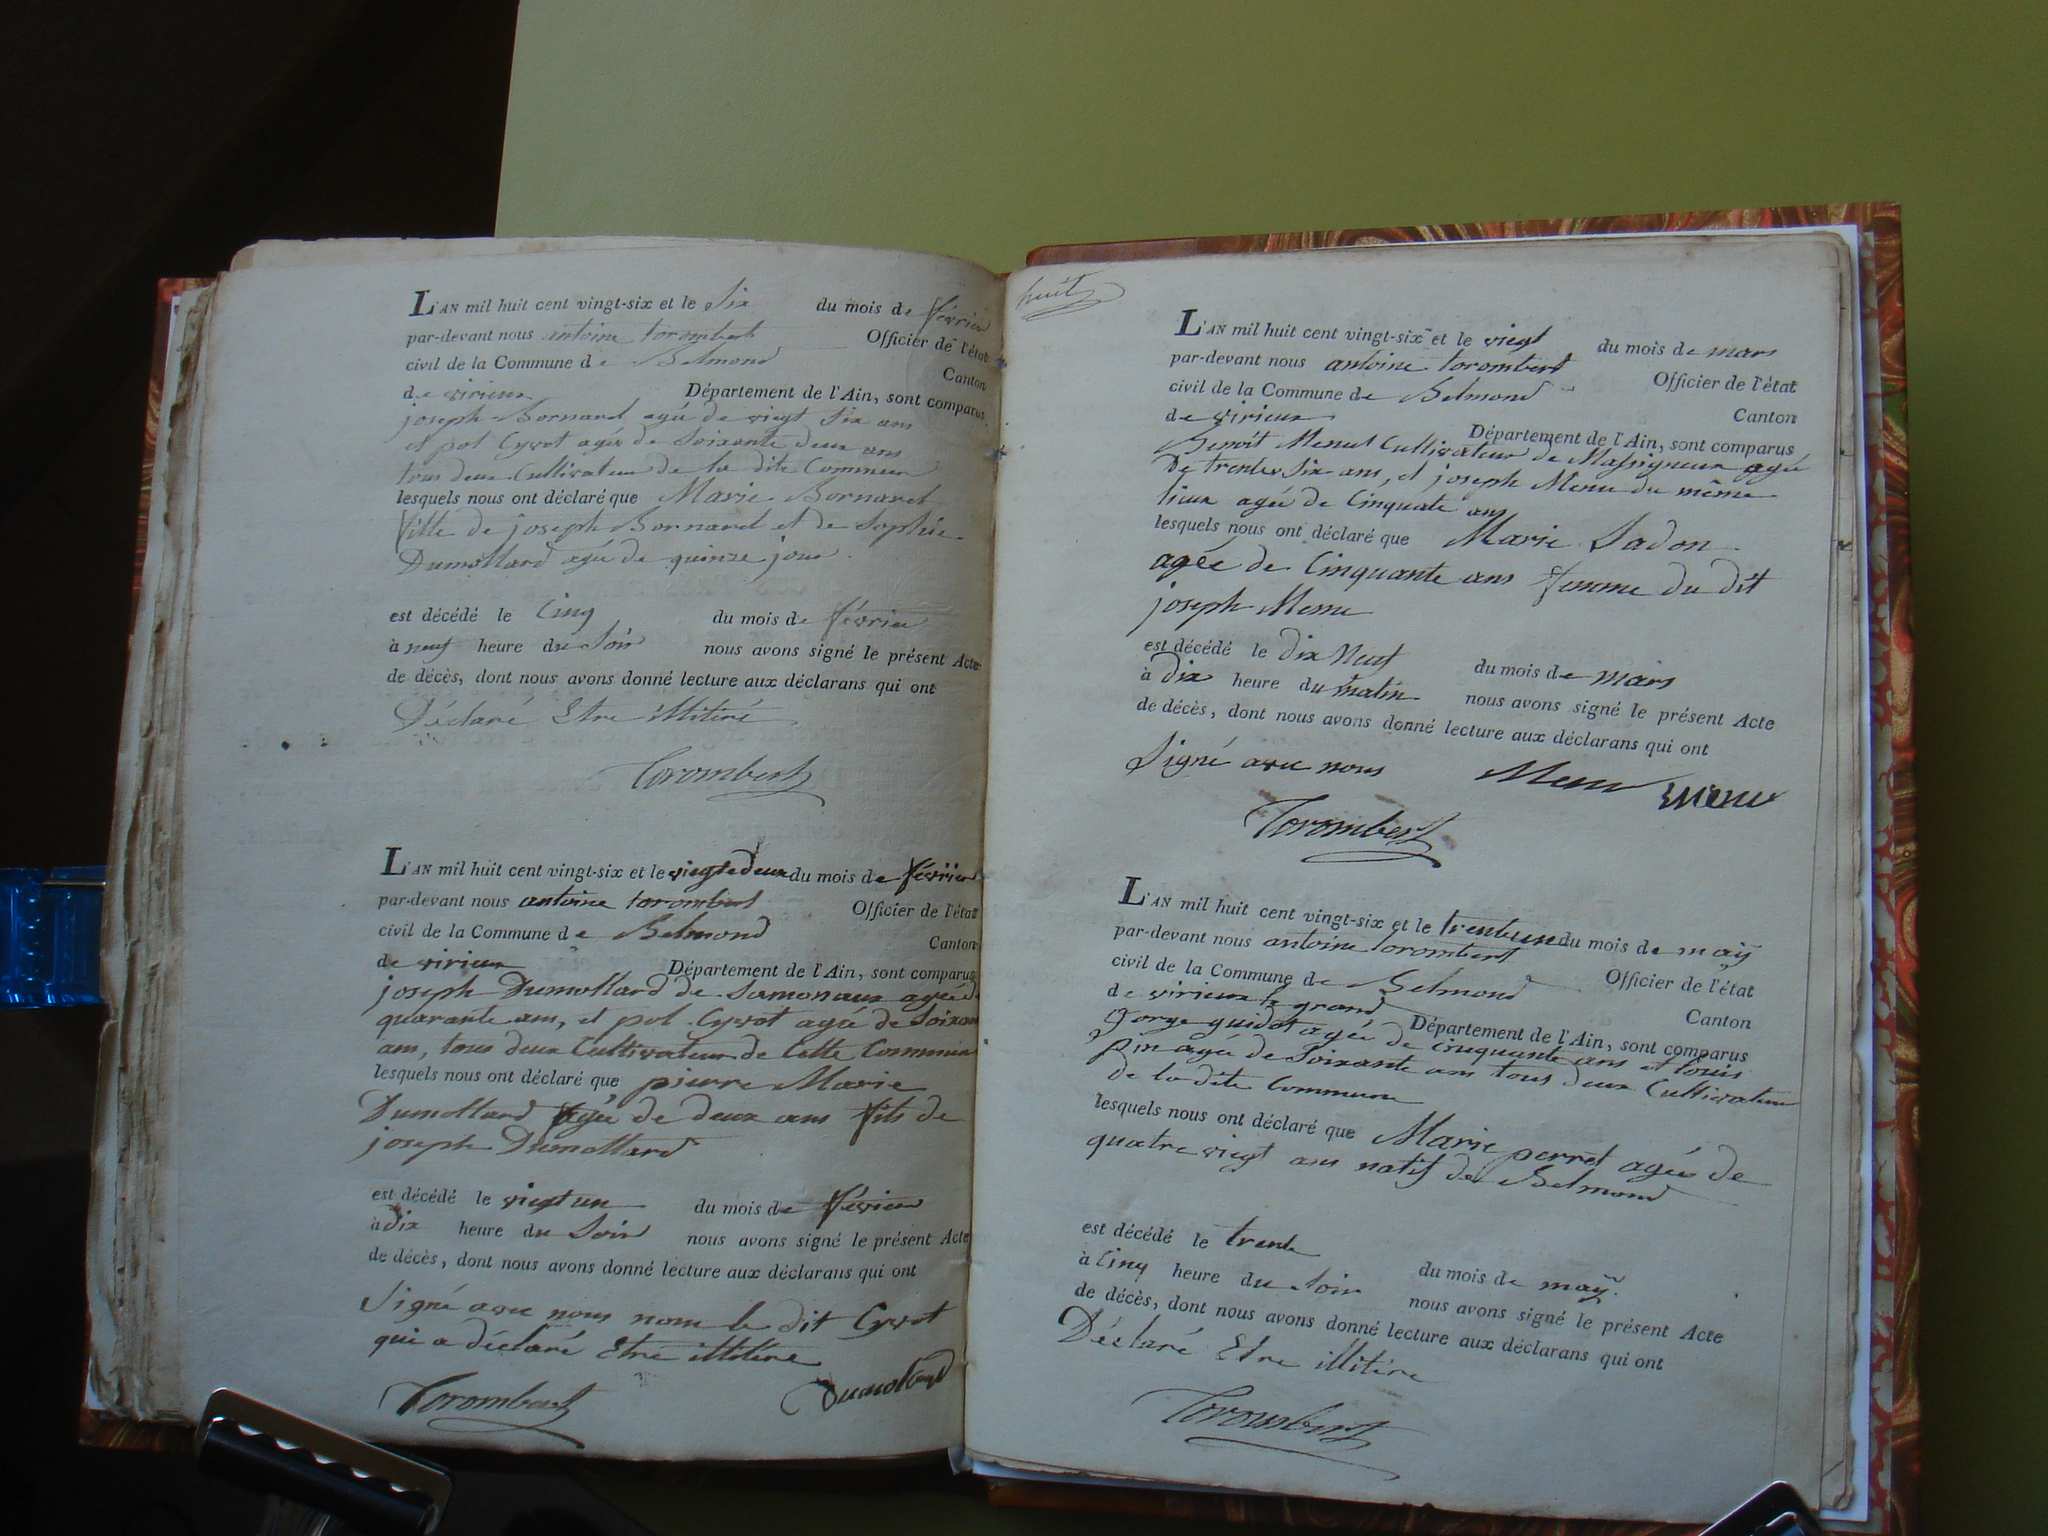 L'AN mil huit cent vingt-six et le Six du mois de février
par-devant nous antoine torombert Officier de l'état
civil de la Commune de Belmond Canton
de virieux Département de l'Ain, sont comparus
joseph Bornard agée de viegt Six ans
et pol Cyvot agée de Soixante deux ans
tous deux Cultivateur de la dite Commune
lesquels nous ont déclaré que Marie Bornard
fille de joseph Bornard et de Sophie
Dumollard agée de quinze jour
est décédé le Cinq du mois de février
à neuf heure du Soir nous avons signé le présent Acte
de décès, dont nous avons donné lecture aux déclarans qui ont
Déclaré Etre illitéré
Torombert
L'AN mil huit cent vingt-six et le viegtedeux du mois de février
par-devant nous antoine torombert Officier de l'état
civil de la Commune de Belmond Canton
de virieux Département de l'Ain, sont comparus
joseph Dumollard de agée de
quarante ans, et pol Cyvot agée de Soixante
ans, tous deux Cultivateur de Cette Commune
lesquels nous ont déclaré que pierre Marie
Dumollard agée de deux ans fils de
joseph Dumollard
est décédé le viegt un du mois de février
à dix heure du Soir nous avons signé le présent Acte
de décès, dont nous avons donné lecture aux déclarans qui ont
Signé avec nous nom le dit Cyvot
qui a déclaré Etre illitére
Torombert Dumollard
huit
L'AN mil huit cent vingt-six et le viegt du mois de mars
par-devant nous antoine torombert Officier de l'état
civil de la Commune de Belmond Canton
de virieux Département de l'Ain, sont comparus
Benoit Menut Cultivateur de Massigneux agée
De trente Six ans, et joseph Menu du même
lieux agée de Cinquate ans
lesquels nous ont déclaré que Marie Sadon
agée de Cinquante ans femme du dit
joseph Menu
est décédé le dix Neuf du mois de mars
à dix heure du matin nous avons signé le présent Acte
de décès, dont nous avons donné lecture aux déclarans qui ont
Signé avec nous Menu Menu
Torombert
L'AN mil huit cent vingt-six et le trenteun du mois de maÿ
par-devant nous antoine torombert Officier de l'état
civil de la Commune de Belmond Canton
de virieux le grand Département de l'Ain, sont comparus
jorge guidot agée de cinquante ans et louis
pin agée de Soixante ans tous deux Cultivateur
de la dite Commune
lesquels nous ont déclaré que Marie perret agée de
quatre viegt ans natif de Belmond
est décédé le trente du mois de maÿ
à Cinq heure du Soir nous avons signé le présent Acte
de décès, dont nous avons donné lecture aux déclarans qui ont
Déclaré Etre illitére
Torombert